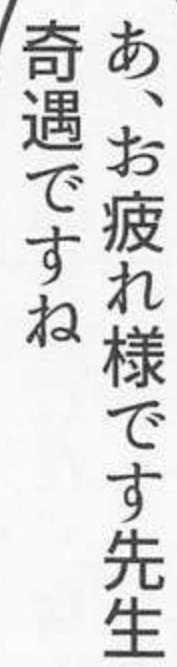 あ、お疲れ様です先生
奇遇ですね